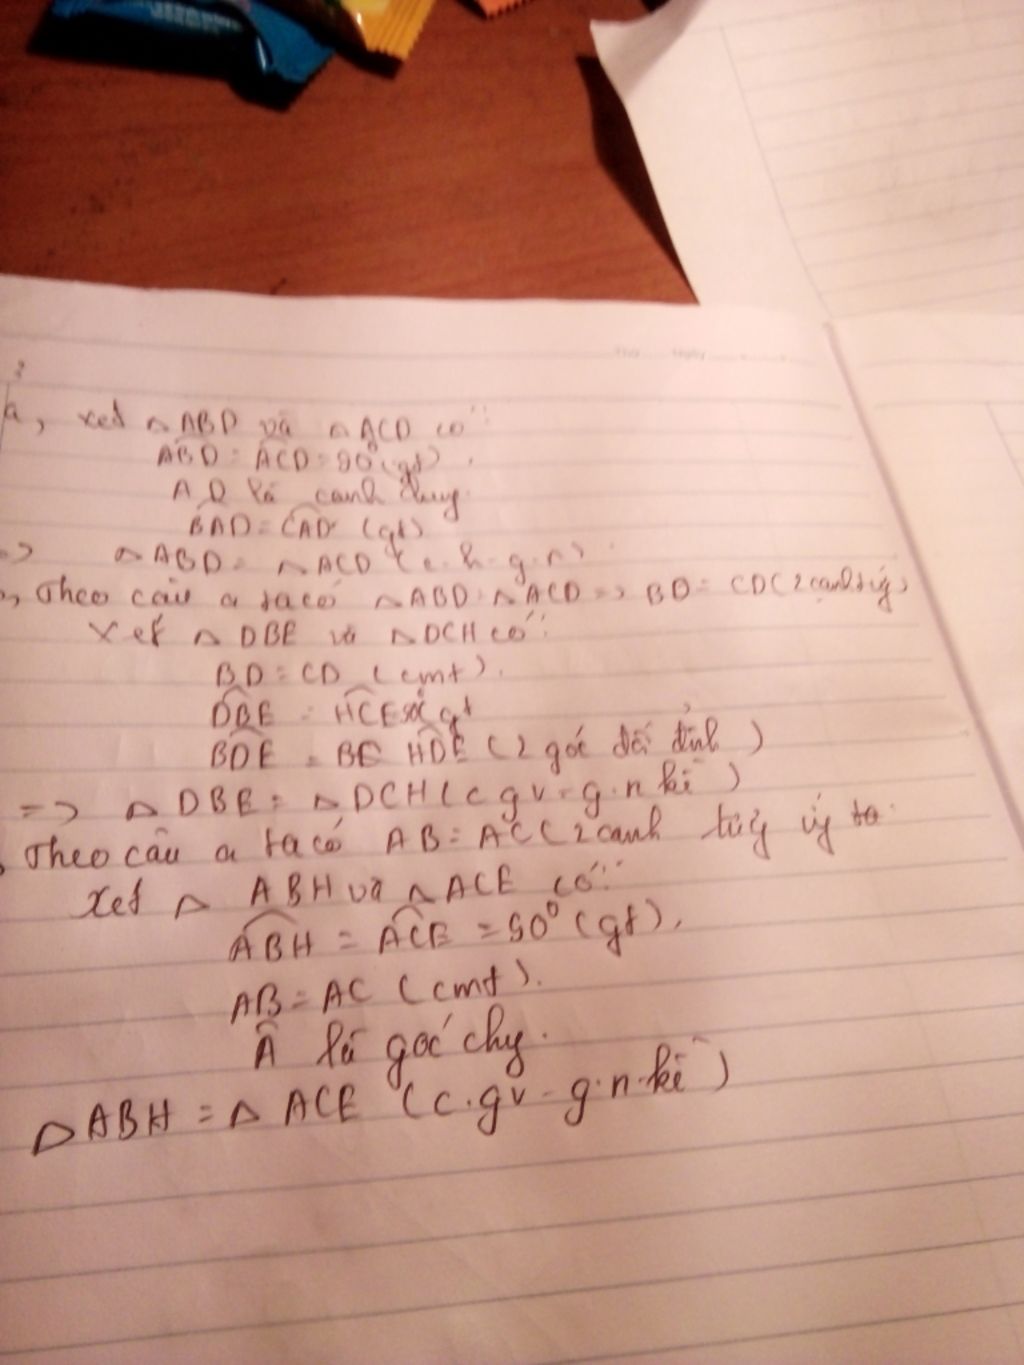 a, xet △ABD và △ACD có:
ABD = ACD = 90° (gt).
AD là canh chug.
BAD = CAD (gt)
=> △ABD = △ACD (c.h-g.n).
Theo câu a ta có △ABD = △ACD => BD = CD (2 cạnh
Xét △ DBE và △DCH có:
BD = CD (cmt).
DBE = HCE gt
BDE = BE HDE (2 góc đối đỉnh)
=> △DBE = △DCH (c gv-g.n kề)
Theo câu a ta có AB = AC (2 canh tưg ứg
Xet △ ABH và △ACE có:
ABH = ACE = 90° (gt).
AB = AC (cmt).
A là góc chug.
△ABH = △ACE (c.gv-g.n.kề)